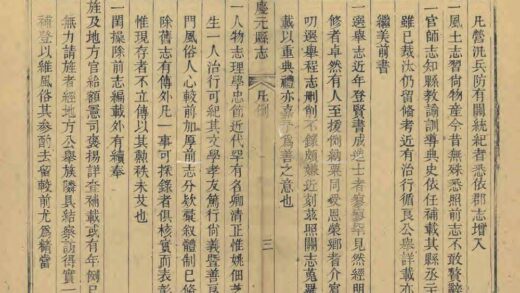 凡營汛兵防有關統紀者悉依郡志增入
一風土志習尚物產今昔無殊悉照前志不敢贅辭
一官師志知縣教諭訓導典史依任補載其縣丞元
雖已裁汰仍留備考近有治行循良公舉詳載亦
繼美前書
一選舉志近年登賢書成進士者寥寥罕見然經明
修者卓然有人至援例納粟同受恩榮鄉者介賓
叨選舉程志刪削不錄頗嫌近刻茲照關志蒐羅
載以重典禮亦嘉為善之意也
慶元縣志 凡例 三
一人物志理學忠節近代罕有名卿清正惟姚佃芝
生一人治行可紀其文學孝友篤行尚義耆善
門風俗人心較前加厚前志分欵叙體制已備
除舊志有傳外凡一事可採錄者俱核實而表彰
惟現存者不立傳以其勳秩未艾也
一閨操除前志編載外有續奉
旌及地方官給額憲司褒揚詳查補載或有年例已
無力請旌者經地方公舉族隣具結察訪得實一
補登以維風俗其參酌去留較前尤爲精當